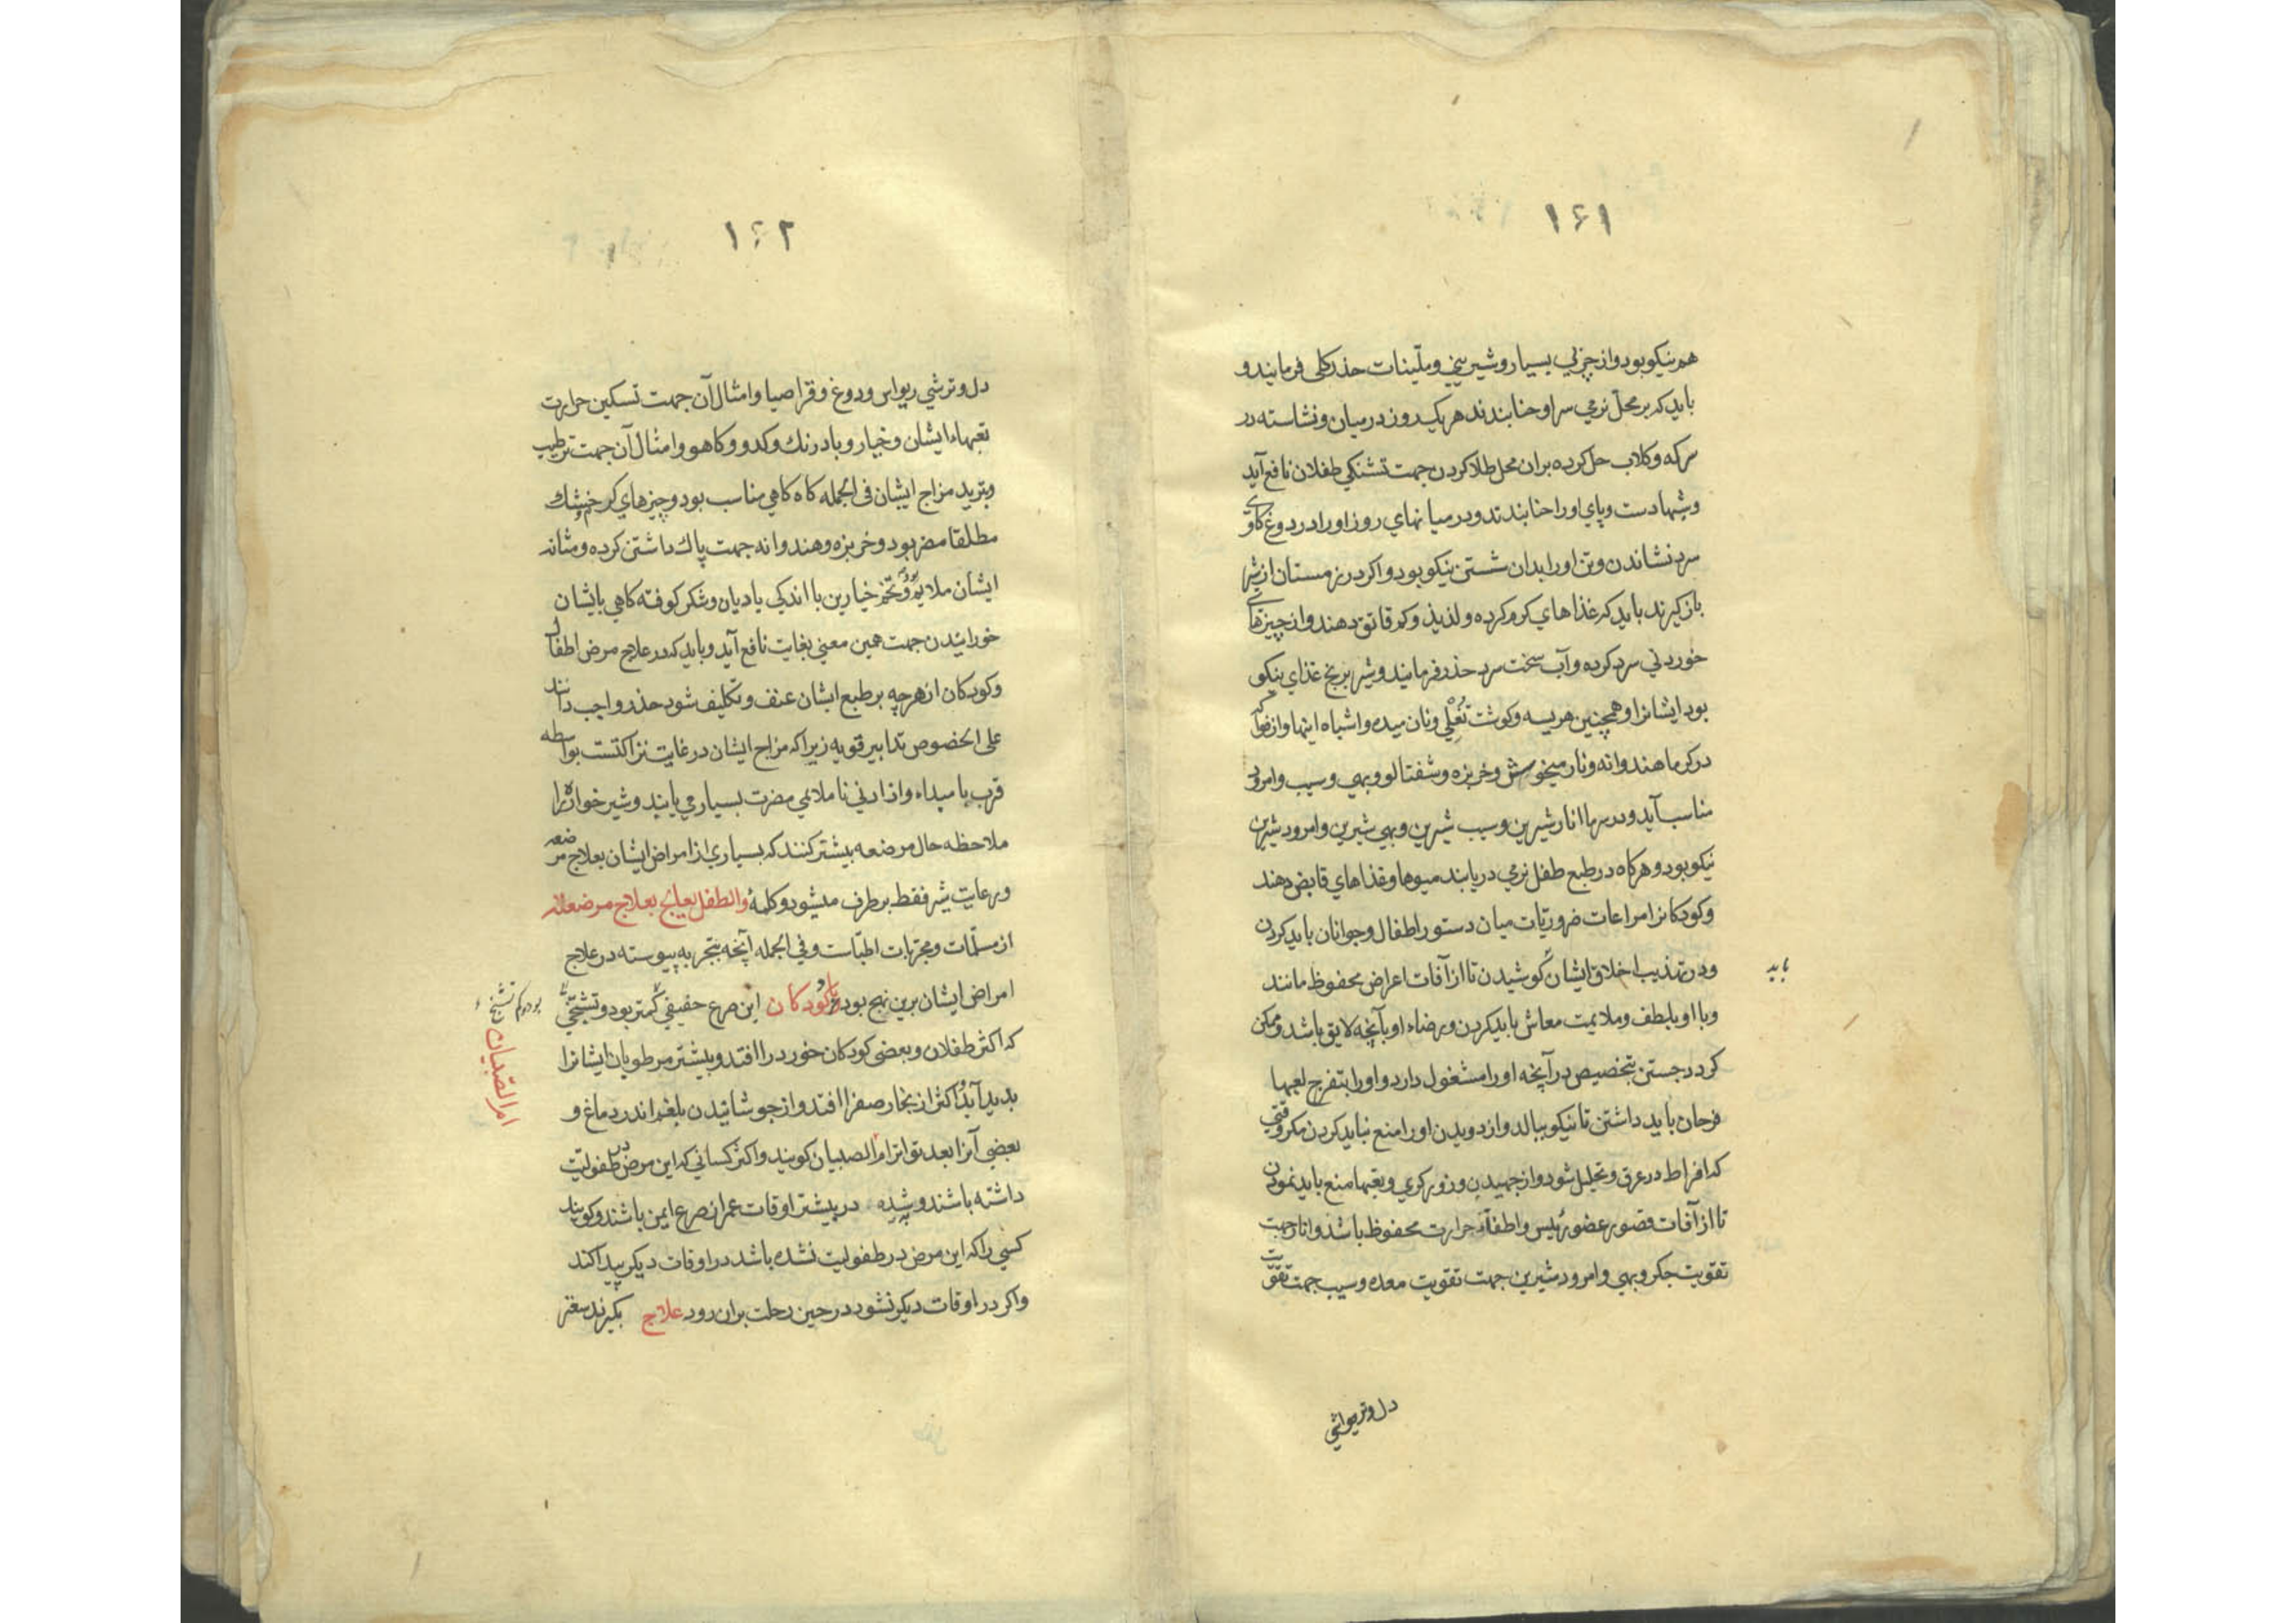 ۱۶۱
هم نیکو بود و از چربی بسیار و شیرینی و ملینات حذر کلی فرمایند و
باید که بر محل نرمی سر او حنا بندند هر یک روز در میان و نشاسته در
سرکه و کلاب حل کرده بران محل طلا کردن جهت تشنکی طفلان نافع آید
وشبها دست و پای او را حنا بندند و در میانهای روز او را در دوغ کاوی
سرد نشاندن و تن او را بدان شستن نیکو بود و اکر در زمستان از شیر
باز کیرند باید که غذاهای کرم کرده و لذیذ و کم قاتق دهند و از چیزهای
خوردنی سرد کرده و آب سخت سرد حذر فرمایند و شیر برنج غذای نیکو
بود ایشانرا و همچنین هریسه و کوشت ونان میده و اشباه اینها و از فواکه
در کرما هندوانه و نار میخوش و خربزه و شفتالو و بهی و سیب و امرود
مناسب آید و در سرما انار شیرین و سیب شیرین و بهی شیرین و امرود شیرین
نیکو بود و هرکاه در طبع طفل نرمی دریابند میوها و غذاهای قابض دهند
و کودکانرا مراعات ضروریات میان دستور اطفال و جوانان باید کردن
ودر تهذیب اخلاق ایشان کوشیدن تا از آفات اعراض محفوظ مانند
باید
وبا او بلطف و ملایمت معاش باید کردن و رضاء او بآنچه لایق باشد و ممکن
کردد جستن بتخصیص در آنچه او را مشغول دارد و او را بتفرج لعبها
فرحان باید داشتن تا نیکو ببالد و از دویدن او را منع نباید کردن مکر وقتی
که افراط در عرق و تحلیل شود و از جهیدن و زورکری و تعبها منع باید نمودن
تا از آفات قصور عضو رئیس و اطفآء حرارت محفوظ باشد و انار جهت
تقویت جکر و بهی و امرود شیرین جهت تقویت معده و سیب جهت تقویت
دل و ترشی
۱۶۲
دل و ترشی ریواس و دوغ و قراصیا و امثال آن جهت تسکین حرارت
تعبهاء ایشان و خیار و بادرنك و کدو و کاهو و امثال آن جهت ترطیب
وتبرید مزاج ایشان فی الجمله کاه کاهی مناسب بود و چیزهای کرم و خشك
مطلقا مضر بود و خربزه و هندوانه جهت پاك داشتن کرده و مثانه
ایشان ملایم بود و تخم خیارین با اندکی بادیان و شکر کوفته کاهی بایشان
خورانیدن جهت همین معنی بغایت نافع آید و باید که در علاج مرض اطفال
و کودکان از هرچه بر طبع ایشان عنف و تکلیف شود حذر واجب دانند
علی الخصوص تدابیر قویه زیرا که مزاج ایشان در غایت نزاکتست بواسطه
قرب با مبداء و از ادنی ناملائمی مضرت بسیار می یابند و شیر خواره را
ملاحظه حال مرضعه بیشتر کنند که بسیاری از امراض ایشان بعلاج مرضعه
ورعایت شیر فقط برطرف میشود و کلمهٔ والطفل یعالج بعلاج مرضعته
از مسلّمات و مجربات اطبّاست و فی الجمله آنچه بتجربه پیوسته در علاج
امراض ایشان برین نهج بود صرع کودکان این صرع حقیقی کمتر بود و تشنجی
بود و کم تشنج
ام الصبیان
که اکثر طفلان و بعضی کودکان خورد را افتد و بیشتر مرطوبان ایشانرا
پدید آید و اکثر از بخار صفرا افتد و از جوشانیدن بلغم اندر دماغ و
بعضی آنرا بعد تواتر ام الصبیان کویند و اکثر کسانی که این مرض در طفولیّت
داشته باشند و شده در بیشتر اوقات عمر از صرع ایمن باشند و کویند
کسی را که این مرض در طفولیت نشده باشد در اوقات دیکر پیدا کند
واکر در اوقات دیکر نشود در حین رحلت بران رود علاج بکیرند سعتر